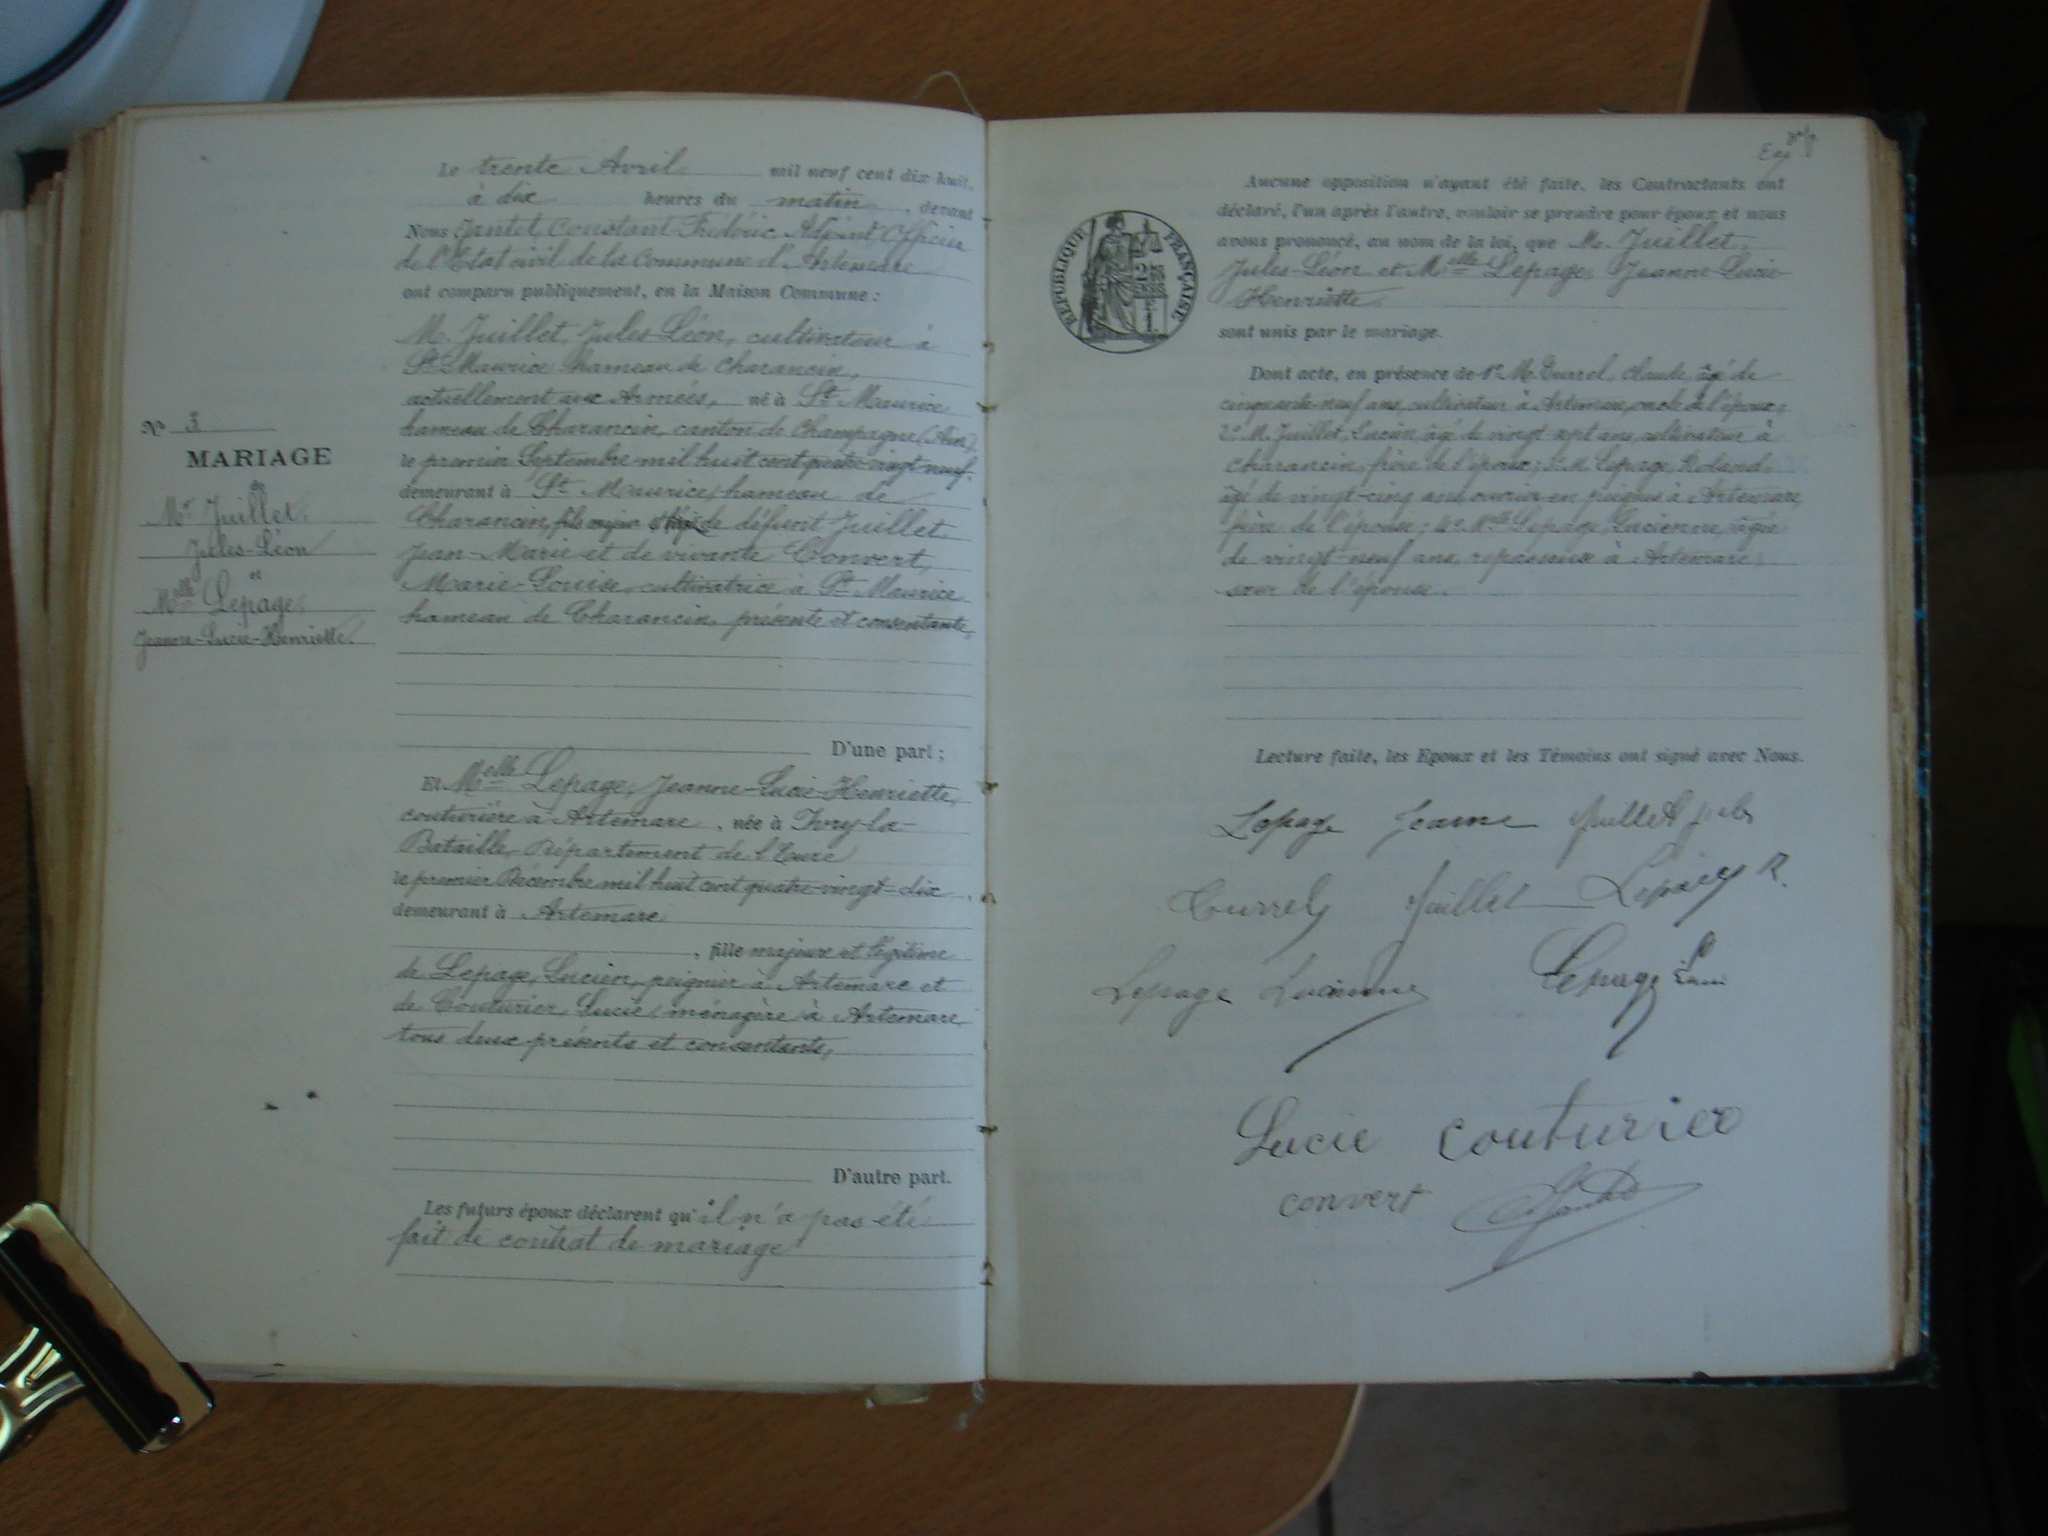 Le trente Avril mil neuf cent dix huit,
à dix heures du matin, devant
Nous Jantet Constant Frédéric Adjoint Officier
de l'Etat civil de la Commune d'Artemare
ont comparu publiquement, en la Maison Commune :
M. Juillet, Jules-Léon, cultivateur à
St Maurice hameau de Charancin,
actuellement aux Armées, né à St Maurice
hameau de Charancin, canton de Champagne (Ain),
le premier Septembre mil huit cent quatre-vingt neuf.
demeurant à St Maurice, hameau de
Charancin, fils majeur et légitime de défunt Juillet
Jean-Marie et de vivante Convert,
Marie-Louise, cultivatrice à St Maurice
hameau de Charancin, présente et consentante,
N° 3
MARIAGE
de
Mr Juillet,
Jules-Léon
et
Melle Lepage,
Jeanne-Lucie-Henriette.
D'une part ;
Et Melle Lepage, Jeanne-Lucie-Henriette,
couturière à Artemare, née à Ivry-la-
Bataille, Département de l'Eure
le premier Décembre mil huit cent quatre-vingt-dix,
demeurant à Artemare
, fille majeure et légitime
de Lepage, Lucien, peignier à Artemare et
de Couturier, Lucie, ménagère à Artemare,
tous deux présents et consentants,
D'autre part.
Les futurs époux déclarent qu'il n'a pas été
fait de contrat de mariage
RÉPUBLIQUE FRANÇAISE
Aucune opposition n'ayant été faite, les Contractants ont
déclaré, l'un après l'autre, vouloir se prendre pour époux et nous
avons prononcé, au nom de la loi, que Mr Juillet,
Jules-Léon et Melle Lepage, Jeanne-Lucie-
Henriette,
sont unis par le mariage.
Dont acte, en présence de 1° M. Currel, Claude, âgé de
cinquante-neuf ans, cultivateur à Artemare, oncle de l'époux;
2° M. Juillet, Lucien, âgé de vingt-sept ans, cultivateur à
Charancin, frère de l'époux; 3° M. Lepage, Roland,
âgé de vingt-cinq ans, ouvrier en peignes à Artemare,
frère de l'épouse; 4° Melle Lepage, Lucienne, âgée
de vingt-neuf ans, repasseuse à Artemare,
sœur de l'épouse.
Lecture faite, les Epoux et les Témoins ont signé avec Nous.
Lepage Jeanne Juillet Jules
Currel Juillet Lepage R.
Lepage Lucienne Lepage
Lucie couturier
convert